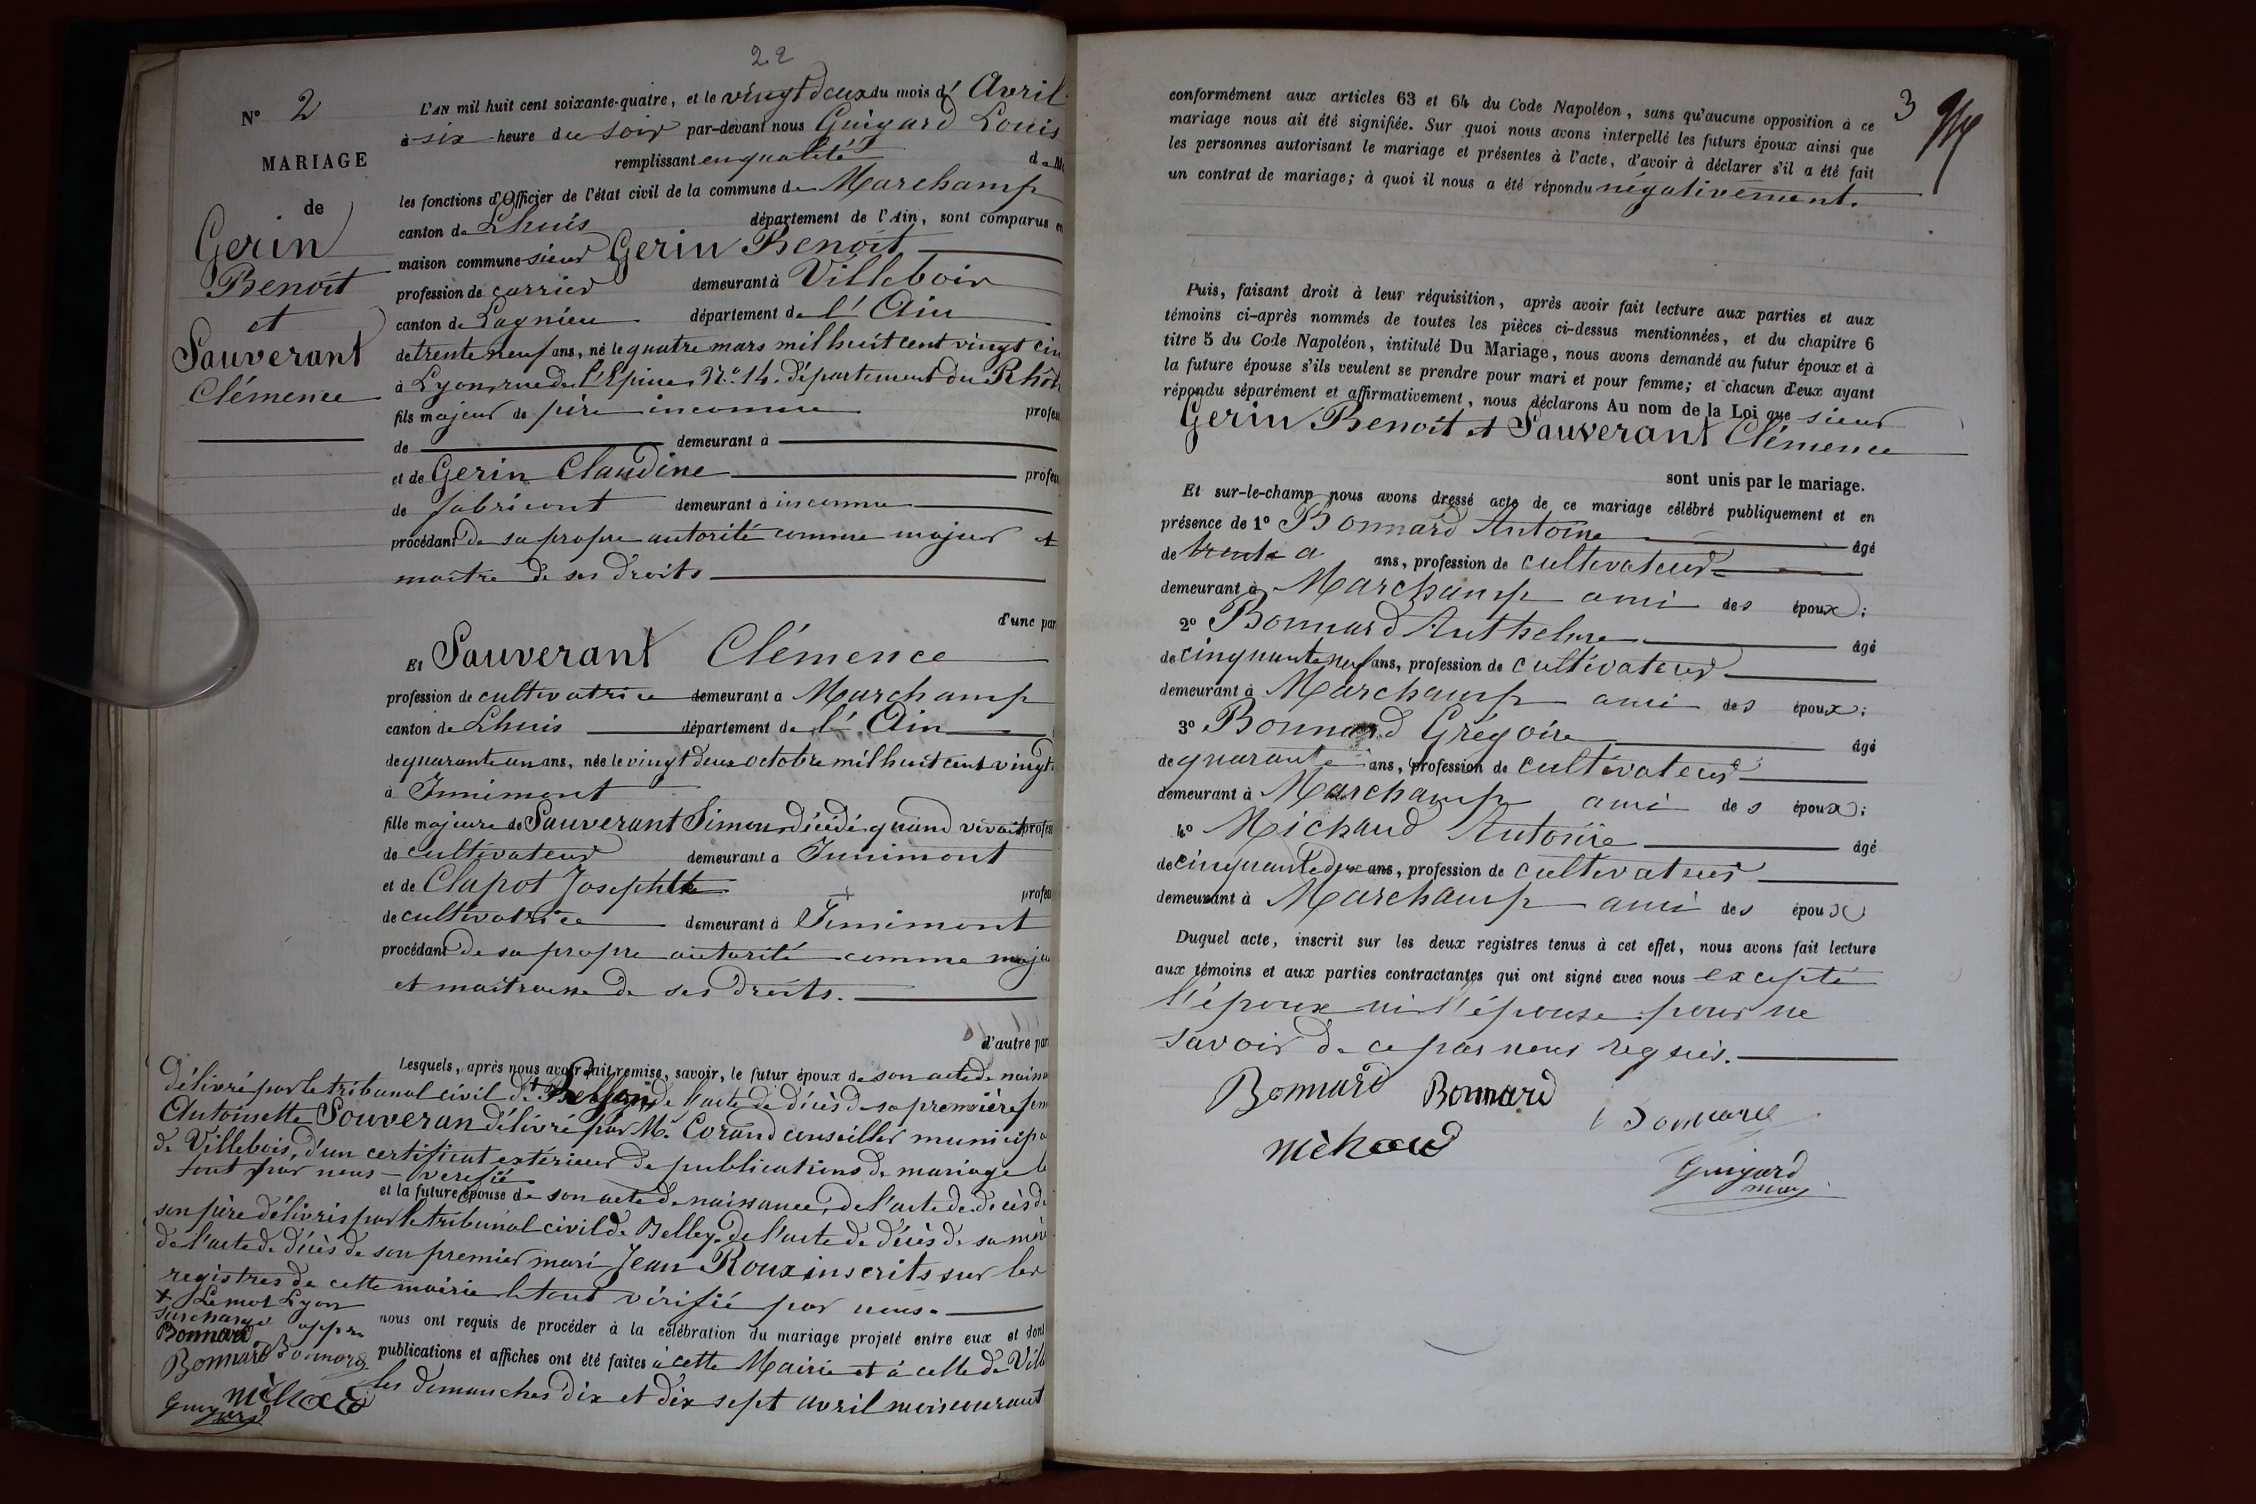 22
N° 2
MARIAGE
de
Gerin
Benoît
et
Sauverant
Clémence
L'AN mil huit cent soixante-quatre, et le vingt deux du mois d' Avril
à six heure du soir par-devant nous Guigard Louis
remplissant en qualité de
les fonctions d'Officier de l'état civil de la commune de Marchamp
canton de Lhuis département de l'Ain, sont comparus en
maison commune sieur Gerin Benoît
profession de carrier demeurant à Villebois
canton de Lagnieu département de l'Ain
de trente neuf ans, né le quatre mars mil huit cent vingt cin
à Lyon, rue de l'Epine, N.° 14. département du Rhôn
fils majeur de père inconnu profess
de demeurant à
et de Gerin Claudine profess
de fabricant demeurant à inconnu
procédant de sa propre autorité comme majeur et
maître de ses droits
d'une par
Et Sauverant Clémence
profession de cultivatrice demeurant à Marchamp
canton de Lhuis département de l'Ain
de quarante un ans, née le vingt deux octobre mil huit cent vingt
à Innimont
fille majeure de Sauverant Simon décédé quand vivait profess
de cultivateur demeurant à Innimont
et de Clapot Josephte profess
de cultivatrice demeurant à Innimont
procédant de sa propre autorité comme maje
et maitresse de ses droits.
d'autre par
Lesquels, après nous avoir fait remise, savoir, le futur époux de son acte de naissa
délivré par le tribunal civil de + de l'acte de décès de sa première fem
Antoinette Souveran délivré par Mr. Corand conseiller municipa
de Villebois, d'un certificat extérieur de publications de mariage le
tout par nous verifié
et la future épouse de son acte de naissance, de l'acte de décès de
son père délivris par le tribunal civil de Belley, de l'acte de décès de sa mère
de l'acte de décès de son premier mari Jean Roux inscrits sur les
registres de cette mairie le tout vérifié par nous.
+ Le mot Lyon
surchargé appr
Bonnard
Bonnard Bonnard
Michaud
Guigard
nous ont requis de procéder à la célébration du mariage projeté entre eux et dont
publications et affiches ont été faites à cette Mairie et à celle de Ville
les dimanches dix et dix sept avril mois courant
3
conformément aux articles 63 et 64 du Code Napoléon, sans qu'aucune opposition à ce
mariage nous ait été signifiée. Sur quoi nous avons interpellé les futurs époux ainsi que
les personnes autorisant le mariage et présentes à l'acte, d'avoir à déclarer s'il a été fait
un contrat de mariage; à quoi il nous a été répondu négativement.
Puis, faisant droit à leur réquisition, après avoir fait lecture aux parties et aux
témoins ci-après nommés de toutes les pièces ci-dessus mentionnées, et du chapitre 6
titre 5 du Code Napoléon, intitulé Du Mariage, nous avons demandé au futur époux et à
la future épouse s'ils veulent se prendre pour mari et pour femme; et chacun d'eux ayant
répondu séparément et affirmativement, nous déclarons Au nom de la Loi que sieur
Gerin Benoît et Sauverant Clémence
sont unis par le mariage.
Et sur-le-champ nous avons dressé acte de ce mariage célébré publiquement et en
présence de 1° Bonnard Antoine âgé
de trente ans, profession de cultivateur
demeurant à Marchamp ami des époux;
2° Bonnard Anthelme âgé
de cinquante neuf ans, profession de cultivateur
demeurant à Marchamp ami des époux;
3° Bonnard Grégoire âgé
de quarante ans, profession de cultivateur
demeurant à Marchamp ami des époux;
4° Michaud Antoine âgé
de cinquante deux ans, profession de cultivateur
demeurant à Marchamp ami des époux
Duquel acte, inscrit sur les deux registres tenus à cet effet, nous avons fait lecture
aux témoins et aux parties contractantes qui ont signé avec nous excepté
l'époux ni l'épouse pour ne
savoir de ce par nous requis.
Bonnard Bonnard
Bonnard
Michaud
Guigard
maire